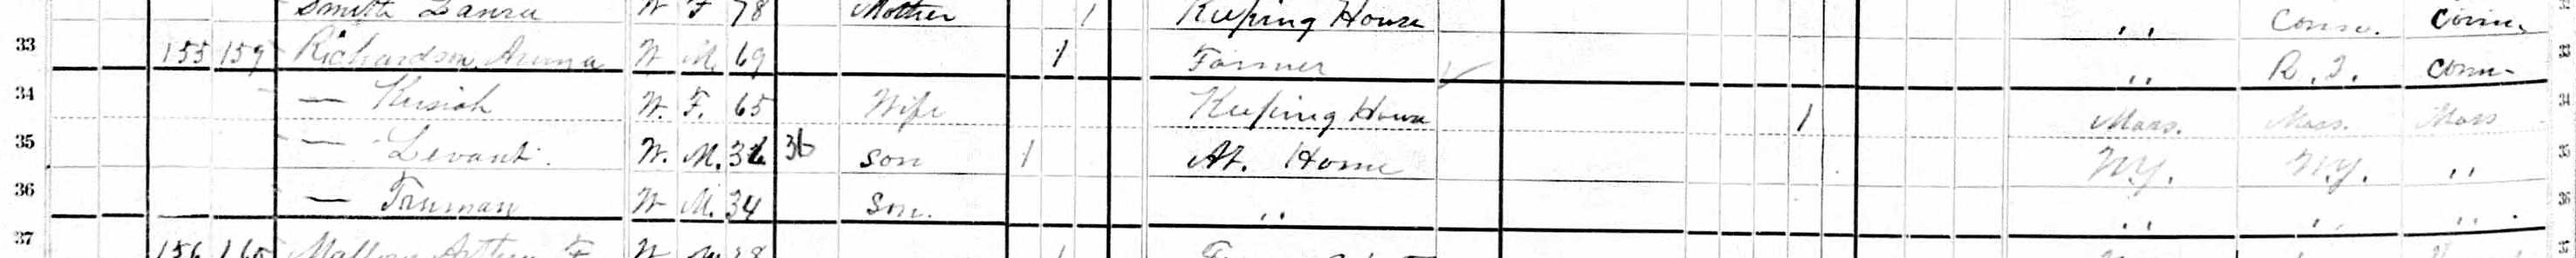 Smith Laura W F 78 Mother 1 Keeping House " Conn. Conn.
33 155 159 Richardson W M. 69 1 Farmer " R.I. Conn. 33
34 — Kesiah W. F. 65 Wife Keeping House 1 Mass. Mass. Mass 34
35 — Levanti. W. M. 36 36 son 1 At. Home N.Y. N.Y. " 35
36 — Truman W M. 34 Son. " " " " 36
37 156 160 Arthur F W M 38 1